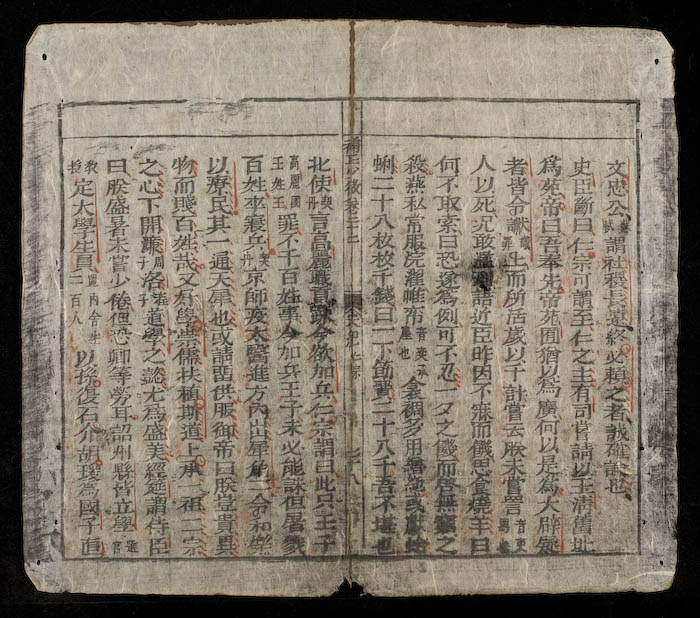 文忠公蘇軾謂社稷長遠終必頼之者誠確論也
史臣斷曰仁宗可謂至仁之主有司嘗請以玉淸舊址
爲苑帝曰吾奉先帝苑囿猶以爲廣何以是爲大辟疑
者皆令讞議罪也上而所活歲以千計嘗云朕未嘗詈音吏罵也
人以死况敢濫刑語近臣昨因不寐而饑思食燒羊曰
何不取索曰恐遂爲例可不忍一夕之饑而啓無窮之
殺燕私常服浣濯帷帟音奕承塵也衾裯多用繒絁或獻蛤
蜊二十八枚枚千錢曰一下筯費二十八千吾不堪也
仁宗
北使契丹言高麗職貢踈今欲加兵仁宗謂曰此只王子
高麗國王姓王罪不干百姓事今加兵王子未必能誅但屠戮
百姓卒寢兵契丹京師疫太醫進方內出犀角二令和藥
以療民其一通天犀也或請留供服御帝曰朕豈貴異
物而賤百姓哉又好學崇儒扶植斯道上承一祖二宗
之心下開濂周子洛程子道學之懿尤爲盛美經筵謂侍臣
曰朕盛暑未嘗少倦但恐卿等勞耳詔州縣皆立學選官
教授定太學生員置內舍生二百人以孫復石介胡瑗爲國子直